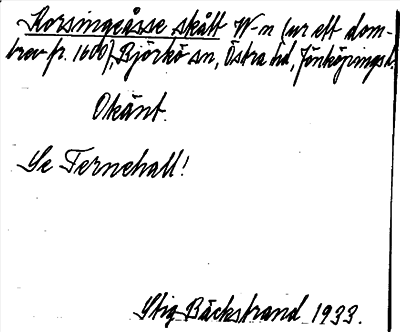 Korsingeåsse skått W-n (ur ett dom-
brev fr. 1600) Björkö sn, Östra hd, Jönköpings l.
Okänt.
Se Fernehall!
Stig Bäckstrand 1933.